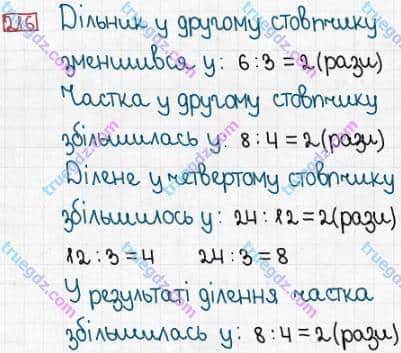 216 Дільник у другому стовпчику
зменшився у: 6:3=2(рази)
Частка у другому стовпчику
збільшилась у: 8:4=2(рази)
Ділене у четвертому стовпчику
збільшилось у: 24:12=2(рази)
12:3=4 24:3=8
У результаті ділення частка
збільшилась у: 8:4=2(рази)
truegdz.com
truegdz.com
truegdz.com
truegdz.com
truegdz.com
truegdz.com